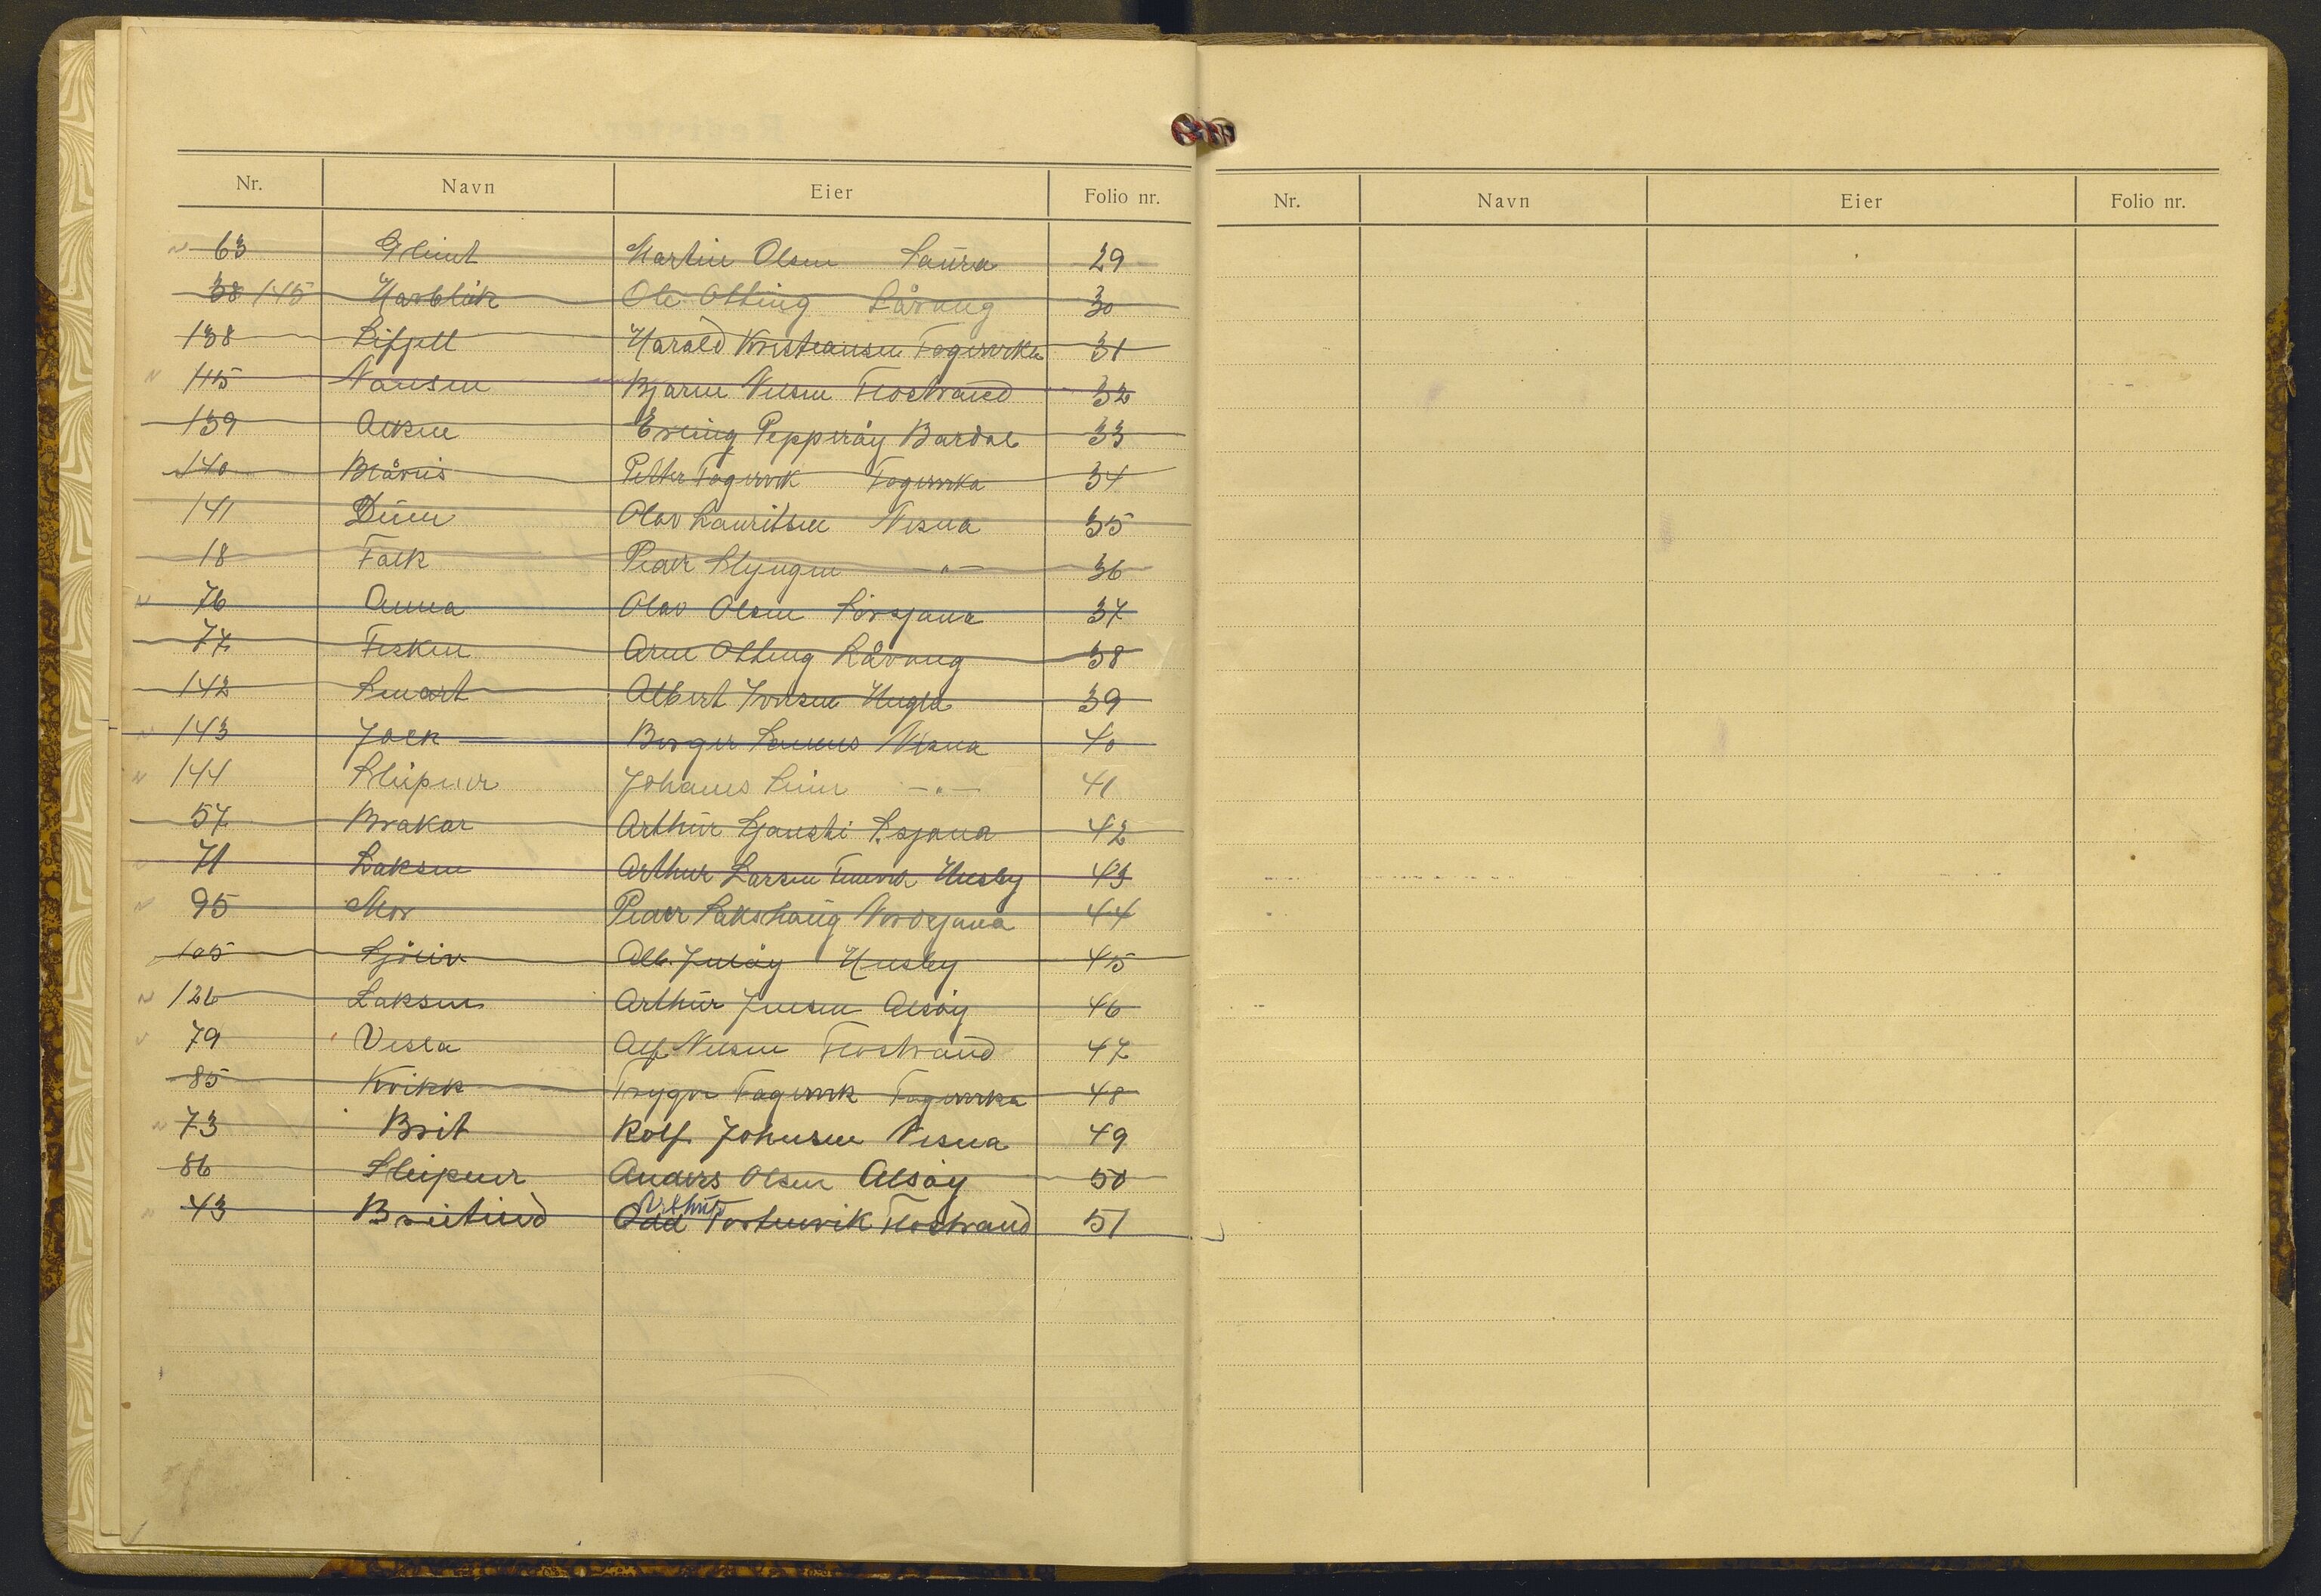 Nr. Navn Eier Folio nr.
63 Glimt Martin Olsen Saura 29
38 145 Havblik Ole Olting Låvong 30
138 Lifjell Harald Kristiansen Fagervika 31
115 Nansen Bjarne Nilsen Flostrand 32
139 Alken Erling Pepperöy Bardal 33
140 Blåveis Petter Fagervik Fagervika 34
141 Duen Olav Lauritsen Nesna 35
18 Falk Peder Slyngen —"— 36
76 Anna Olav Olsen Sörsjona 37
77 Fisken Arne Olting Låvong 38
142 Smart Albert Iversen Hugla 39
143 Jack Borger Nesna 40
144 Sleipner Johannes —"— 41
57 Brakar Arthur S.sjona 42
71 Laksen Arthur Larsen Husby 43
95 Mor Peder Lakshaug Nordsjona 44
105 Sjöliv Alb. Jusöy Husby 45
126 Laksen Arthur Jensen Alsöy 46
79 Vesla Alf Nilsen Flostrand 47
85 Kvikk Trygve Fagervik Fagervika 48
73 Brit Rolf Johnsen Nesna 49
86 Sleipner Anders Olsen Alsöy 50
Arthur
43 Breitind Odd Forsmovik Flostrand 51
Nr. Navn Eier Folio nr.